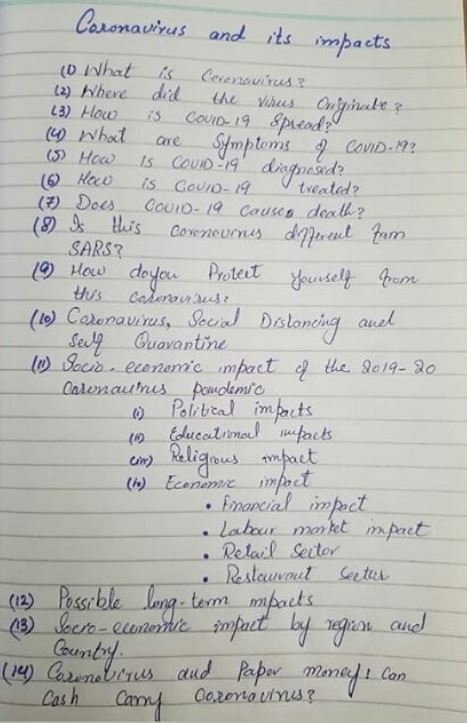 Coronavirus and its impacts
(1) What is Coronavirus?
(2) Where did the virus Originate?
(3) How is COVID-19 Spread?
(4) What are Symptoms of COVID-19?
(5) How Is COVID-19 diagnosed?
(6) How is COVID-19 treated?
(7) Does COVID-19 causes death?
(8) Is this coronavirus different from
SARS?
(9) How do you Protect yourself from
this coronavirus?
(10) Coronavirus, Social Distancing and
Self Quarantine
(11) Socio-economic impact of the 2019-20
Coronavirus pandemic
(i) Political impacts
(ii) Educational impacts
(iii) Religious impact
(iv) Economic impact
• Financial impact
• Labour market impact
• Retail Sector
• Restaurant Sector
(12) Possible long-term impacts
(13) Socio-economic impact by region and
Country.
(14) Coronavirus and Paper money: Can
Cash Carry Coronavirus?